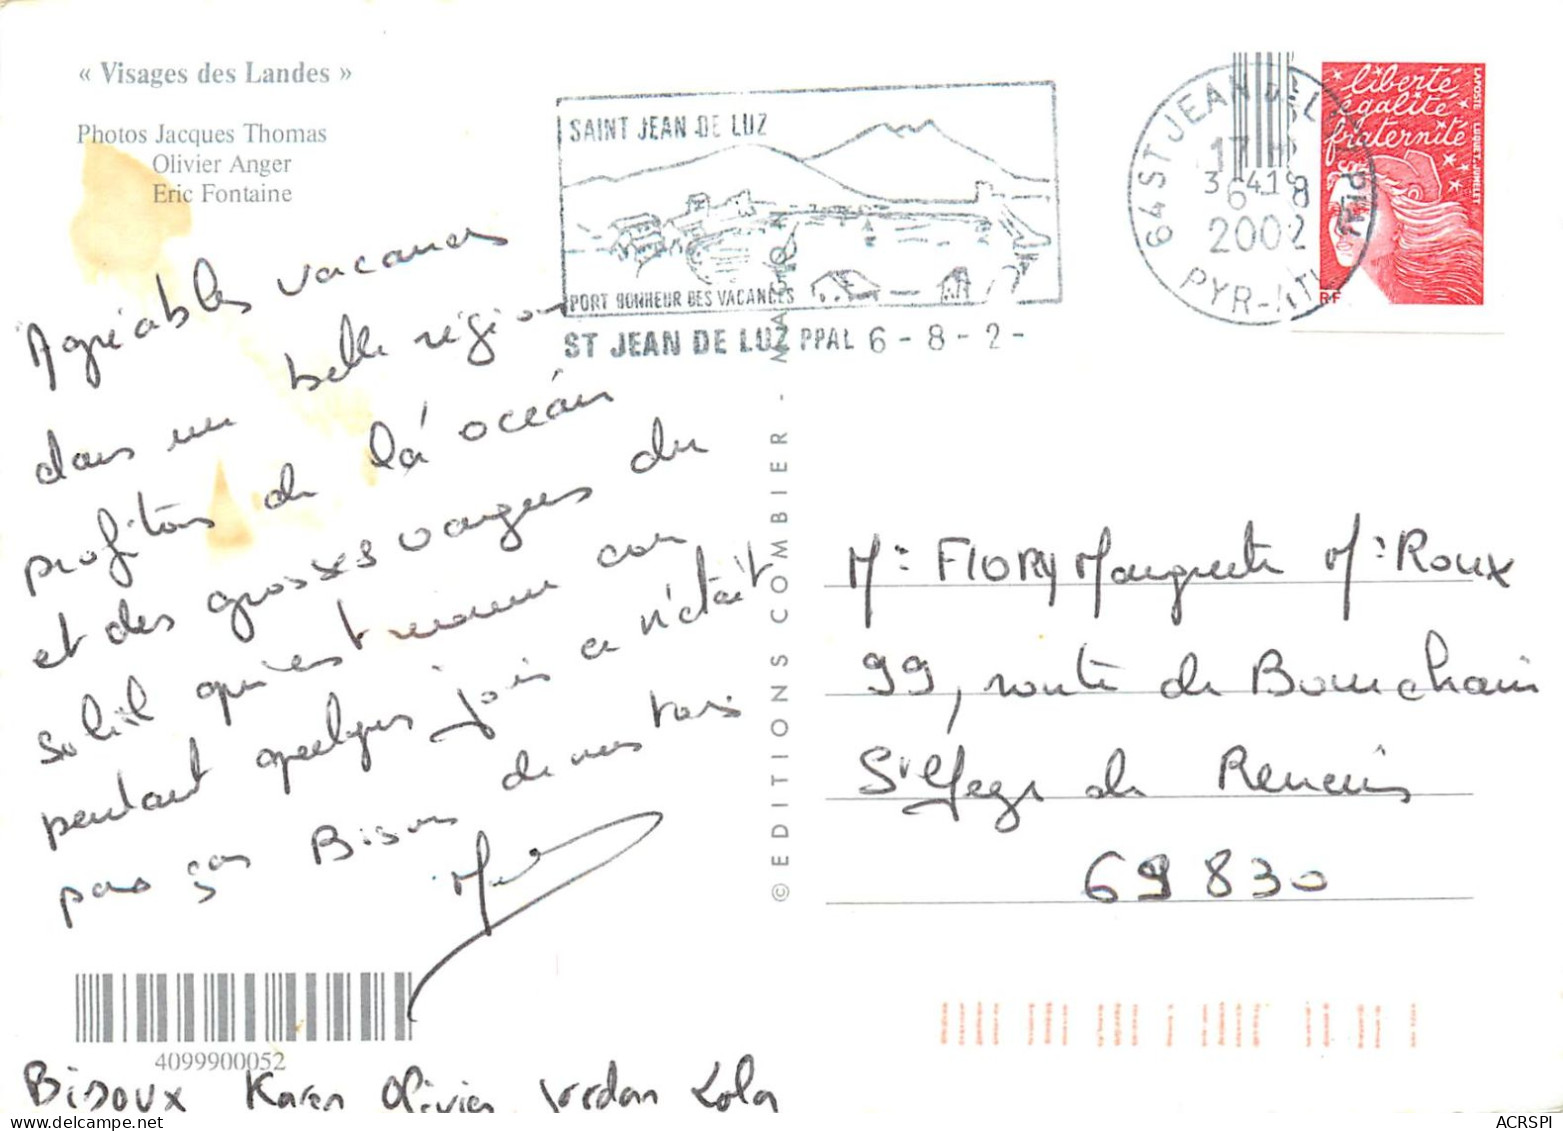 « Visages des Landes »
Photos Jacques Thomas
Olivier Anger
Eric Fontaine
SAINT JEAN DE LUZ
PORT BONHEUR DES VACANCES
ST JEAN DE LUZ PPAL 6 - 8 - 2 -
64 ST JEAN DE LUZ PPAL
17 H
6 8
2002
PYR-ATL
liberté
égalité
fraternité
LA POSTE LUQUET, JUMELET
RF
Agréables vacances
dans un belle région
profitons de là océan
et des grosses vagues du
soleil qui est revenu car
pendant quelques jours ce n'était
pas ça Bisous de nous tous
© EDITIONS COMBIER - MACON
Me FIORY Marguerite Me Roux
99, route de Bourchain
St de Reneins
69830
4099900052
Bisoux Karen Olivier Jordan Lola
ACRSPI